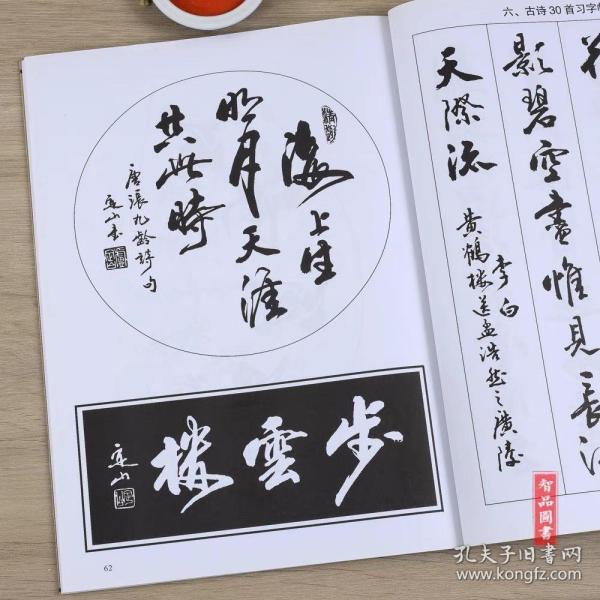 海上生
明月天涯
共此時
唐張九齡詩句
定山書
步雲樓
定山
62
六、古诗30首习字
影碧空盡惟見長江
天際流
李白
黄鶴樓送孟浩然之廣陵
智品圖書
孔夫子旧书网
www.kongfz.com